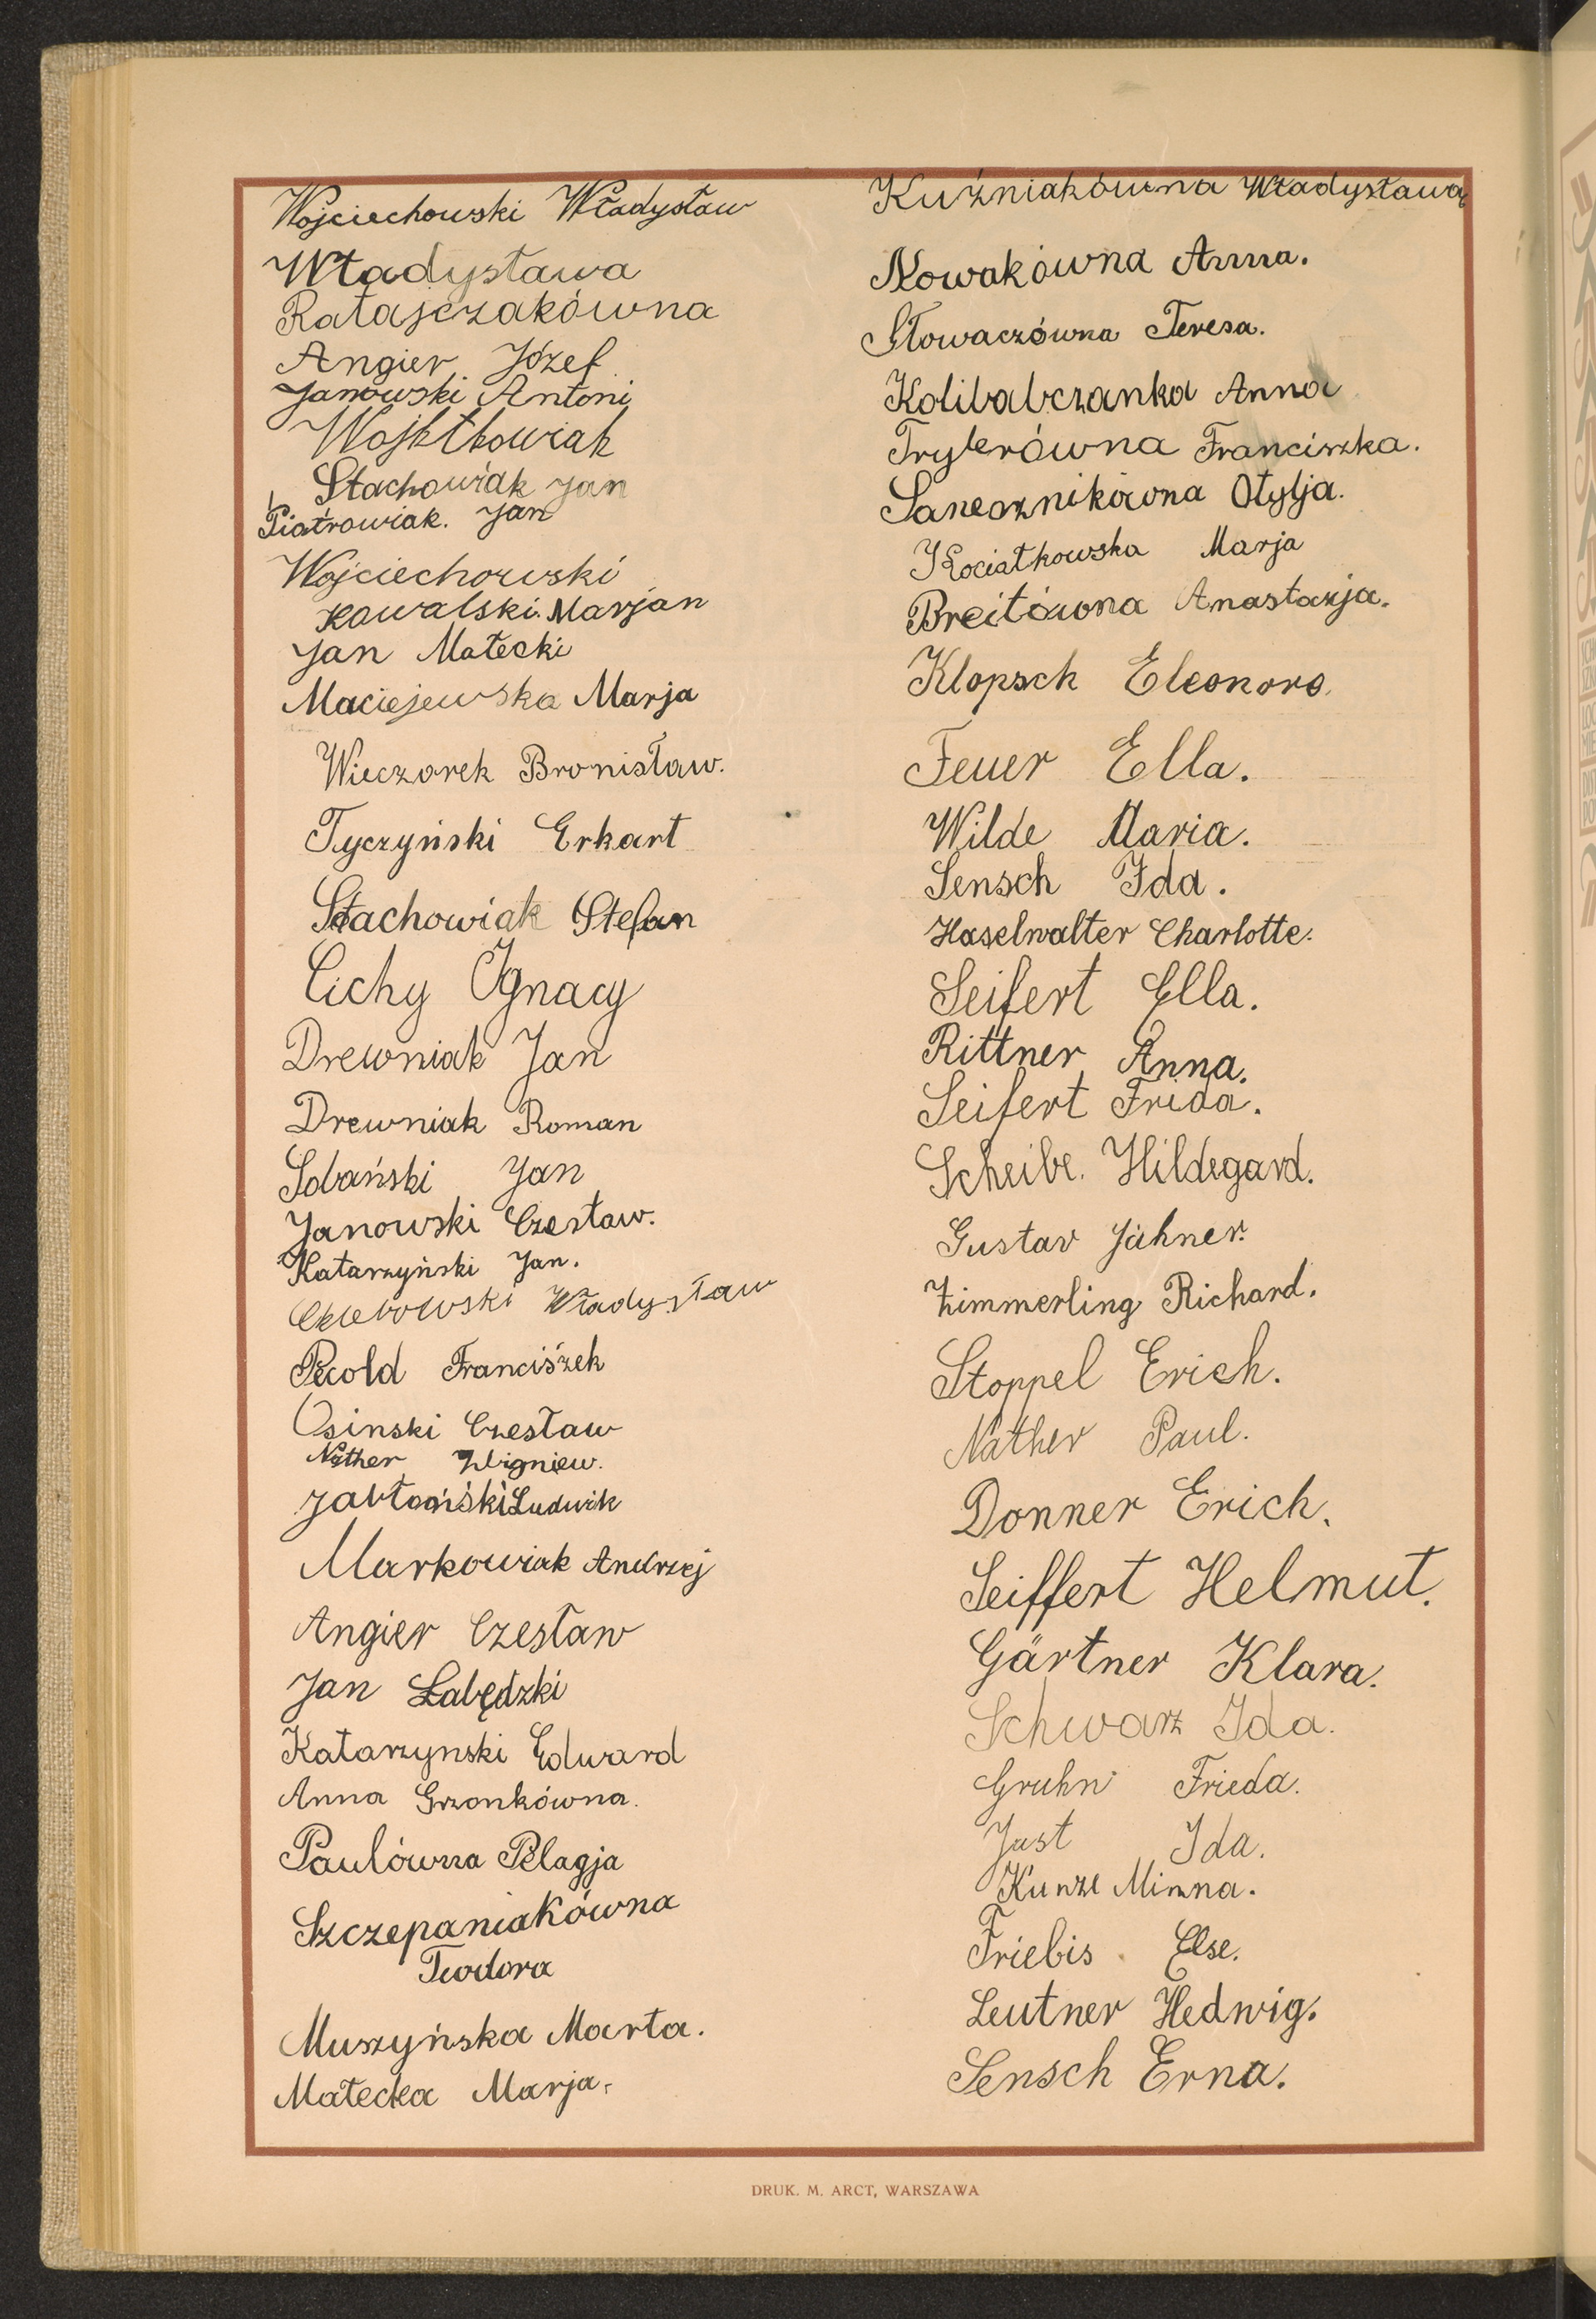 Wojciechowski Władysław
Władysława
Ratajczakówna
Angier Józef
Janowski Antoni
Wojtkowiak
Stachowiak Jan
Piotrowiak. Jan
Wojciechowski
Kowalski Marjan
Jan Małecki
Maciejewska Marja
Wieczorek Bronisław.
Tyczyński Erkart
Stachowiak Stefan
Cichy Ignacy
Drewniak Jan
Drewniak Roman
Sobański Jan
Janowski Czesław.
Katarzyński Jan.
Władysław
Pecold Franciszek
Osinski Czesław
Nather Zbigniew.
Jabłoński Ludwik
Markowiak Andrzej
Angier Czesław
Jan Łabędzki
Katarzynski Edward
Anna Grzonkówna.
Paulówna Pelagja
Szczepaniakówna
Teodora
Muszyńska Marta.
Małecka Marja.
Kuźniakówna Władysława
Nowakówna Anna.
Słowaczówna Teresa.
Kolibabczanka Anna
Tryterówna Franciszka.
Sanecznikówna Otylja.
Kociałkowska Marja
Breitówna Anastazja.
Klopsch Eleonora
Feuer Ella.
Wilde Maria.
Sensch Ida.
Haselwalter Charlotte.
Seifert Ella.
Rittner Anna.
Seifert Frida.
Scheibe. Hildegard.
Gustav Jähner.
Zimmerling Richard.
Stoppel Erich.
Nather Paul.
Donner Erich.
Seiffert Helmut.
Gärtner Klara.
Schwarz Ida.
Gruhn Frieda.
Just Ida.
Kunze Minna.
Friebis Else.
Leutner Hedwig.
Sensch Erna.
DRUK. M. ARCT, WARSZAWA